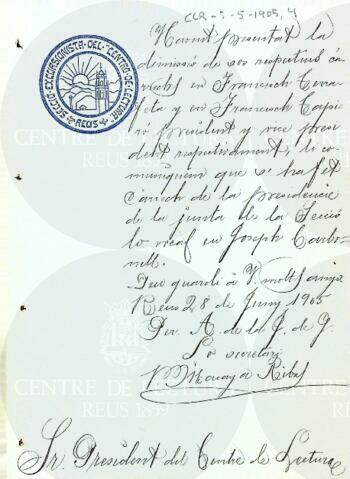 CLR-5-5-1905,4
SECCIÓ EXCURSIONISTA DEL "CENTRO DE LECTURA"
REUS
Havent presentat la
dimissió de sos respectius cár
rechs en Francesch
y en Francesch
president y vice presi
dent respectivament, li co
muniquem que s'ha fet
cárrech de la presidencia
de la junta de la Secció
lo vocal en Joseph Carbo-
nell.
Deu guardi á V. molts anys
Reus 28 de Juny 1905
Per. A. de la J. de G.
Lo secretari
Ribas
Sr. President del Centre de Lectura
CENTRE DE LECTURA
REUS 1859
CENTRE DE LECTURA
REUS 1859